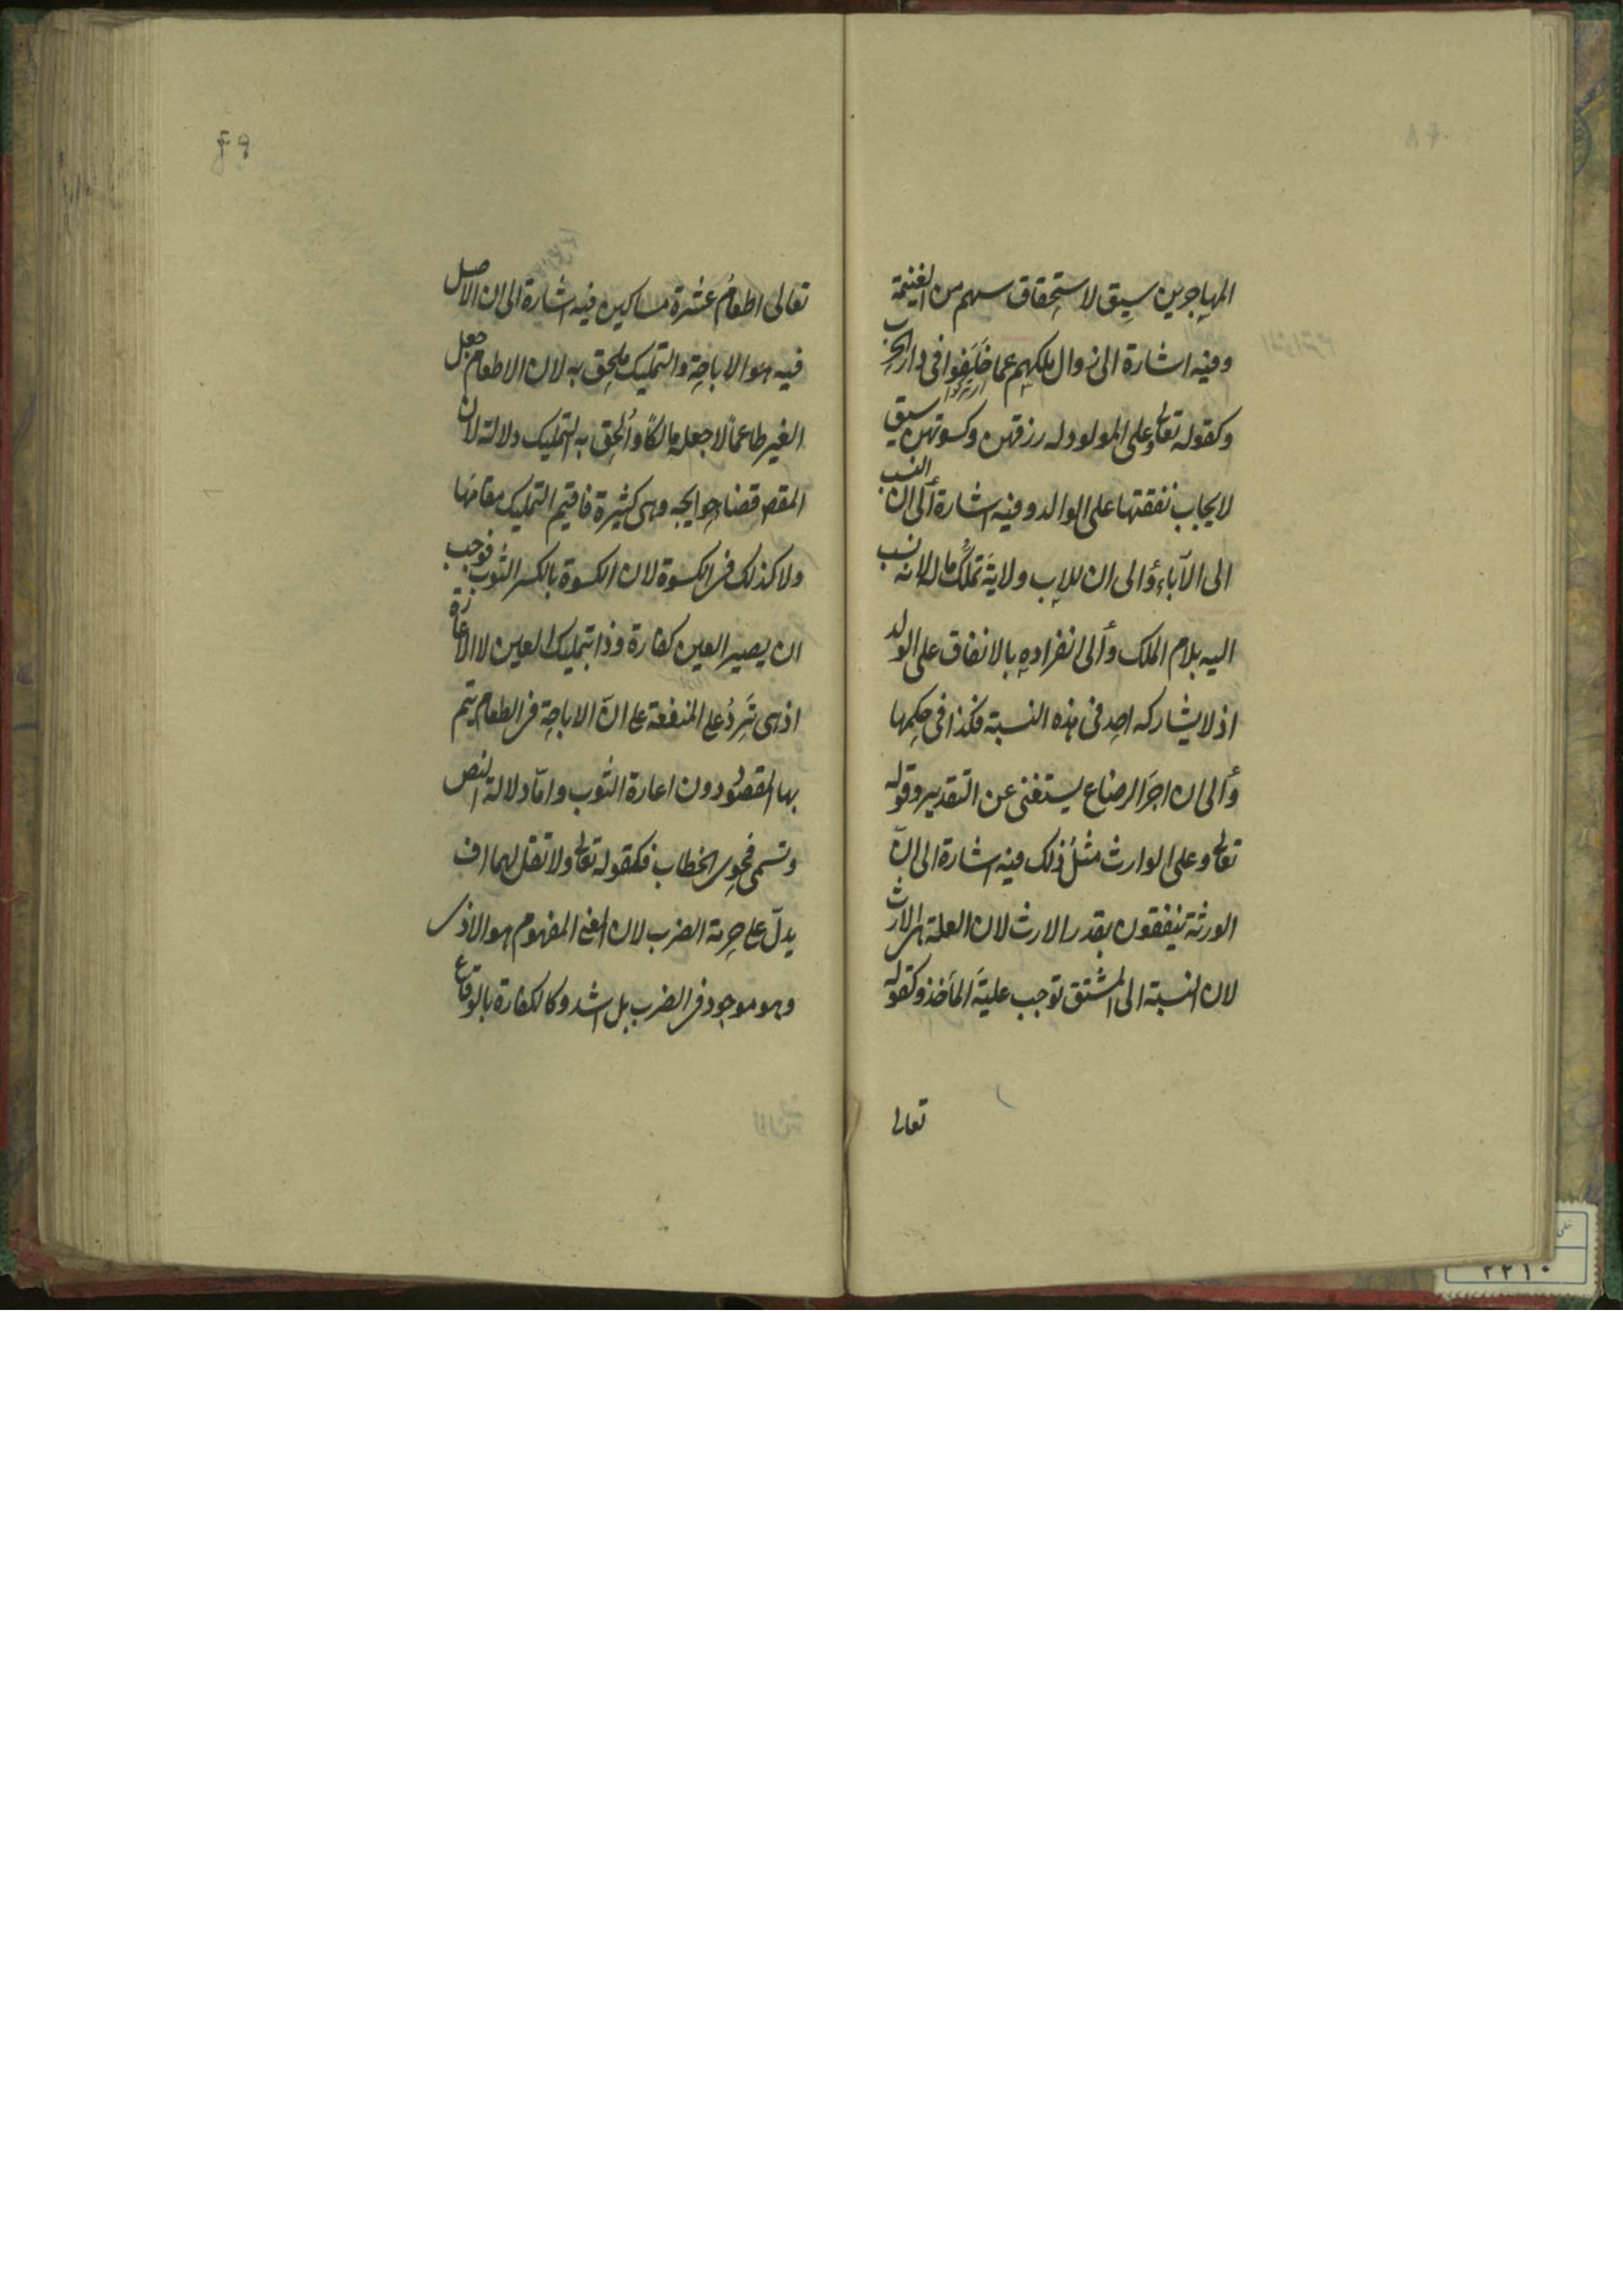 المهاجرين سيق لاستحقاق سهم من الغنيمة
وفيه اشارة الى زوال ملكهم عما خلفوا فى دار الحرب
وكقوله تعالى وعلى المولود له رزقهن وكسوتهن سيق
لايجاب نفقتها على الوالد وفيه اشارة الى ان النسب
الى الآباء وألى ان للاب ولاية تملك ماله لانه نسب
اليه بلام الملك وألى انفراده بالانفاق على الولد
اذ لا يشاركه احد فى هذه النسبة فكذا فى حكمها
وألى ان اجر الرضاع يستغنى عن التقدير وقوله
تعالى وعلى الوارث مثل ذلك فيه اشارة الى ان
الورثة ينفقون بقدر الارث لان العلة هى الارث
لان النسبة الى المشتق توجب علية المأخذ وكقوله
تعالى
٤٩
تعالى اطعام عشرة مساكين فيه اشارة الى ان الاصل
فيه هو الاباحة والتمليك ملحق به لان الاطعام جعل
الغير طاعماً لا جعله مالكاً وألحق به التمليك دلالة لان
المقص قضاء حوايجه وهى كثيرة فاقيم التمليك مقامها
ولا كذلك فى الكسوة لان الكسوة بالكسر الثوب فوجب
ان يصير العين كفارة وذا بتمليك العين لا الاعارة
اذ هى تَرِدُ على المنفعة على انّ الاباحة فى الطعام يتم
بها المقصود دون اعارة الثوب وامّا دلالة النص
وتسمى فحوى الخطاب فكقوله تعالى ولا تقل لهما اف
يدلّ على حرمة الضرب لان المعنى المفهوم هو الاذى
وهو موجود فى الضرب بل اشد وكالكفارة بالوقاع
٢٢١٠